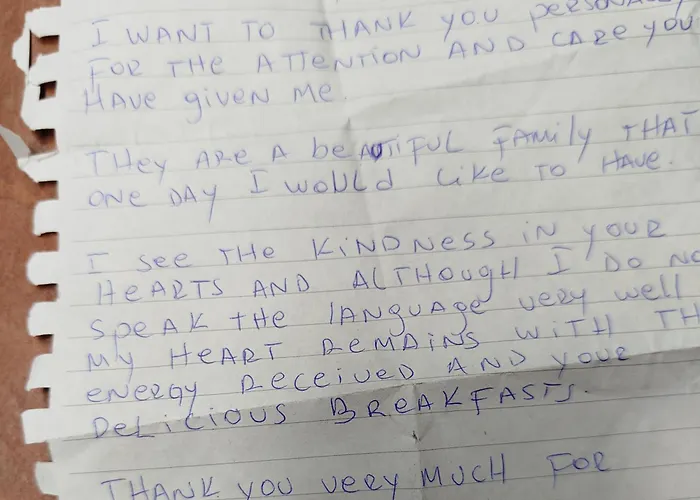 I WANT TO THANK YOU personally
FOR THE ATTENTION AND CARE YOU
HAVE given ME.
THEY ARE A beAUTIFUL FAMILY THAT
ONE DAY I WOULD LIKE TO HAVE.
I see THE KINDNESS IN YOUR
HEARTS AND ALTHOUGH I DO NO
SPEAK THE LANGUAGE very well
MY HEART REMAINS WITH TH
eNeRgy RECEIVED AND YOUR
DELICIOUS BREAKFASTS.
THANK YOU very MUCH FOR